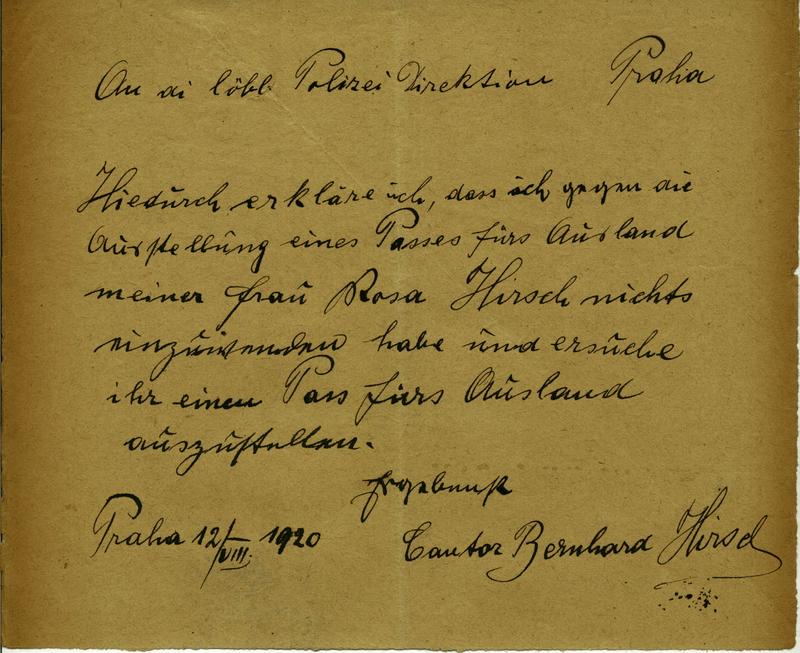 An di löbl. Polizei Direktion Praha
Hiedurch erkläre ich, dass ich gegen die
Ausstellung eines Passes fürs Ausland
meiner Frau Rosa Hirsch nichts
einzuwenden habe und ersuche
ihr einen Pass fürs Ausland
auszustellen.
Ergebenst
Praha 12/VIII. 1920 Cantor Bernhard Hirsch